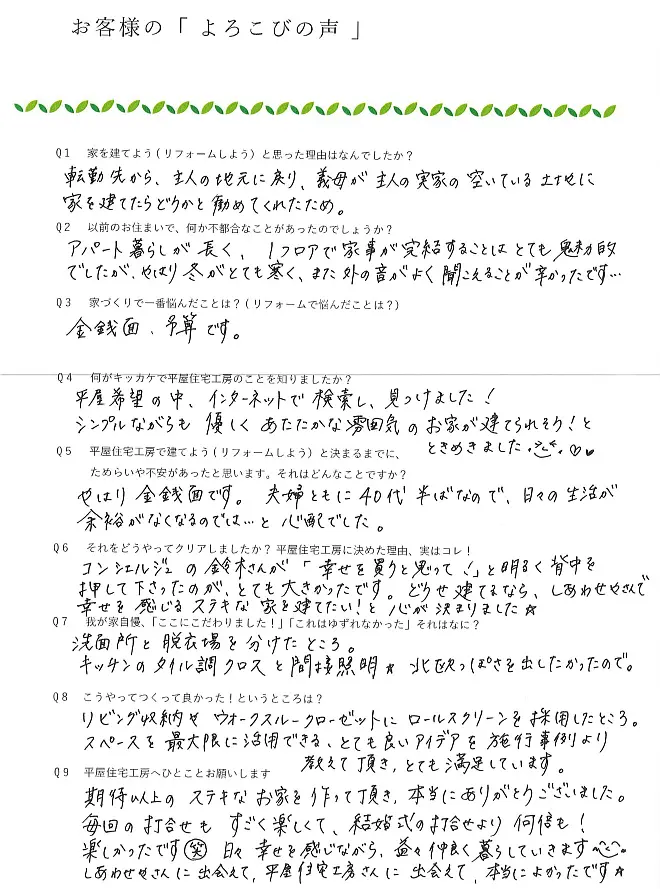 お客様の「よろこびの声」
Q1 家を建てよう(リフォームしよう)と思った理由はなんでしたか？
転勤先から、主人の地元に戻り、義母が主人の実家の空いている土地に
家を建てたらどうかと勧めてくれたため。
Q2 以前のお住まいで、何か不都合なことがあったのでしょうか？
アパート暮らしが長く、1フロアで家事が完結することはとても魅力的
でしたが、やはり冬がとても寒く、また外の音がよく聞こえることが辛かったです…
Q3 家づくりで一番悩んだことは？(リフォームで悩んだことは？)
金銭面、予算です。
Q4 何がキッカケで平屋住宅工房のことを知りましたか？
平屋希望の中、インターネットで検索し、見つけました！
シンプルながらも優しくあたたかな雰囲気のお家が建てられそう！と
ときめきました♡♥
Q5 平屋住宅工房で建てよう(リフォームしよう)と決まるまでに、
ためらいや不安があったと思います。それはどんなことですか？
やはり金銭面です。夫婦ともに40代半ばなので、日々の生活が
余裕がなくなるのでは…と心配でした。
Q6 それをどうやってクリアしましたか？平屋住宅工房に決めた理由、実はコレ！
コンシェルジュの鈴木さんが「幸せを買うと思って！」と明るく背中を
押して下さったのが、とても大きかったです。どうせ建てるなら、しあわせやさんで
幸せを感じるステキな家を建てたい！と心が決まりました☆
Q7 我が家自慢、「ここにこだわりました！」「これはゆずれなかった」それはなに？
洗面所と脱衣場を分けたところ。
キッチンのタイル調クロスと間接照明☆北欧っぽさを出したかったので。
Q8 こうやってつくって良かった！というところは？
リビング収納やウォークスルークローゼットにロールスクリーンを採用したところ。
スペースを最大限に活用できる、とても良いアイデアを施行事例より
教えて頂き、とても満足しています。
Q9 平屋住宅工房へひとことお願いします
期待以上のステキなお家を作って頂き、本当にありがとうございました。
毎回の打合せもすごく楽しくて、結婚式の打合せより何倍も！
楽しかったです㊗日々幸せを感じながら、益々仲良く暮らしていきます
しあわせやさんに出会えて、平屋住宅工房さんに出会えて、本当によかったです☆